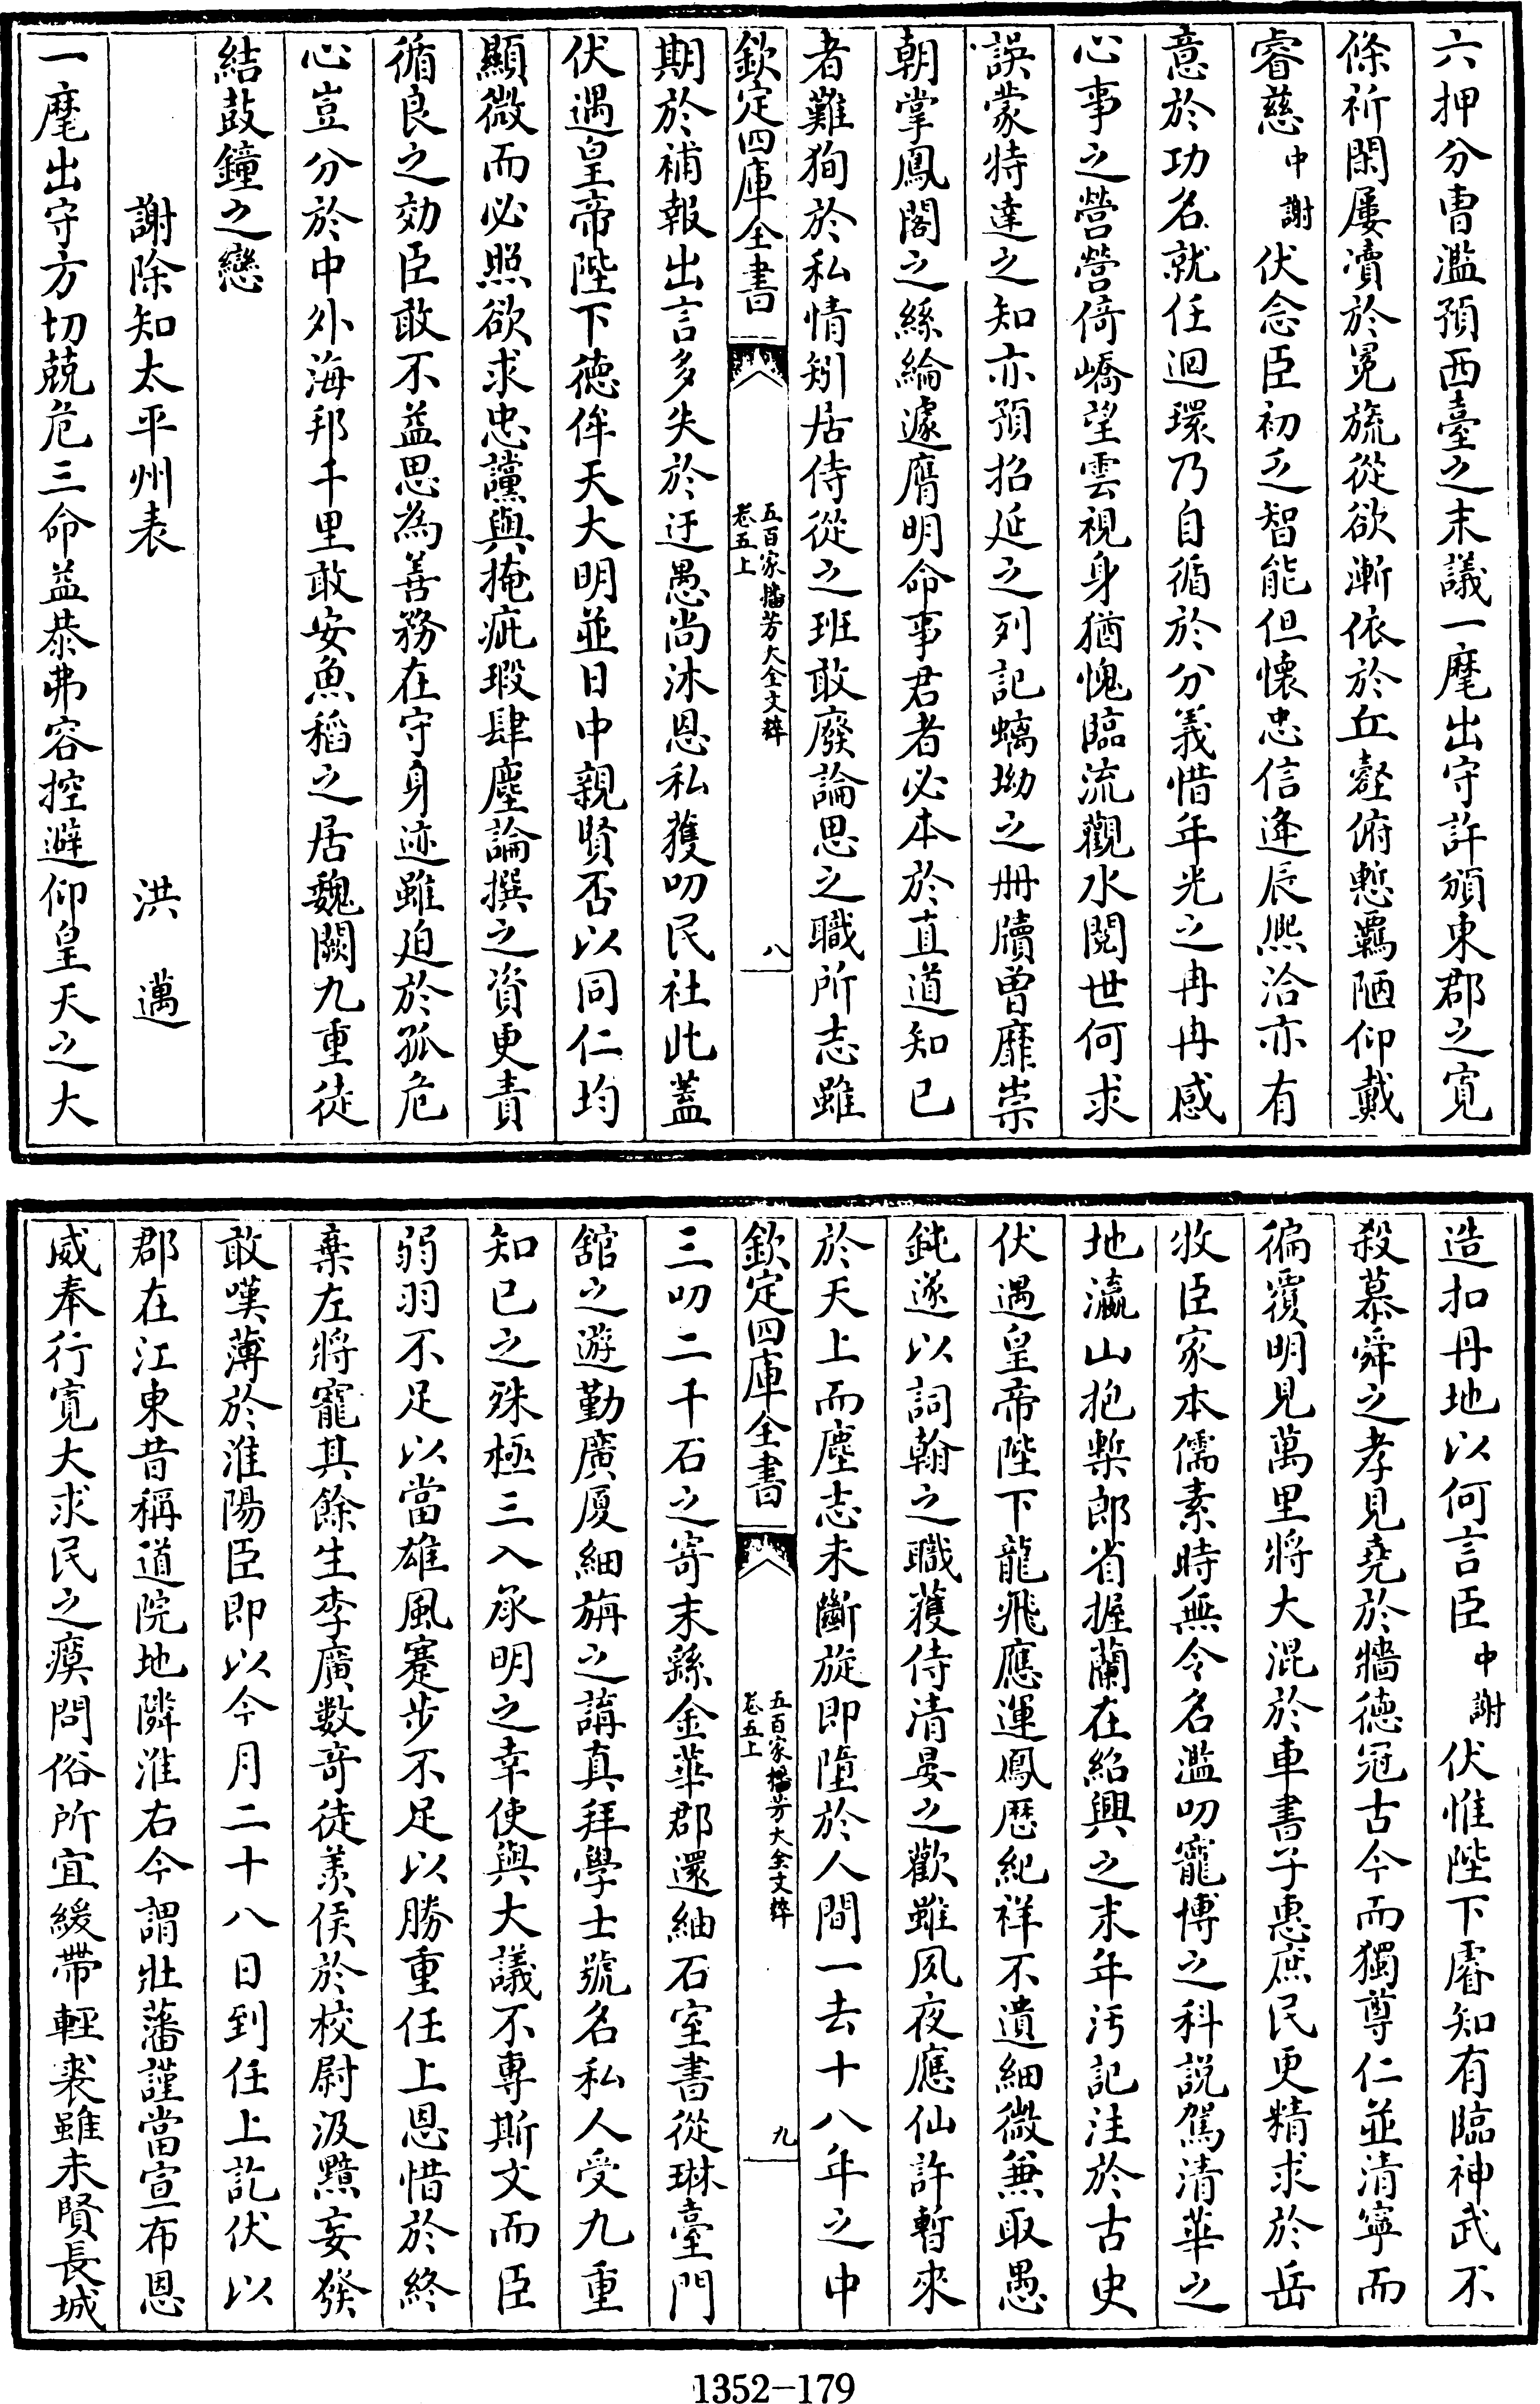 六押分曹濫預西臺之末議一麾出守許頒東郡之寛
條祈閑屢凟於冕旒從欲漸依於丘壑俯慙覊陋仰戴
睿慈中謝伏念臣初乏智能但懐忠信逄辰熈洽亦有
意於功名就任迴環乃自循於分義惜年光之冉冉感
心事之營營倚嶠望雲視身猶愧臨流觀水閲世何求
誤蒙特達之知亦預招延之列記螭坳之冊牘曽靡崇
朝掌鳳閣之絲綸遽膺明命事君者必本於直道知已
者難狥於私情矧居侍從之班敢廢論思之職所志雖
欽定四庫全書
五百家播芳大全文粹
卷五上
八
期於補報出言多失於迂愚尚沐恩私獲叨民社此蓋
伏遇皇帝陛下徳侔天大明並日中親賢否以同仁均
顯微而必照欲求忠讜與掩疵瑕肆塵論撰之資更責
循良之効臣敢不益思為善務在守身迹雖廹於孤危
心豈分於中外海邦千里敢安魚稻之居魏闕九重徒
結鼓鐘之戀
謝除知太平州表
洪邁
一麾出守方切兢危三命益恭弗容控避仰皇天之大
造扣丹地以何言臣中謝伏惟陛下睿知有臨神武不
殺慕舜之孝見堯於牆徳冠古今而獨尊仁並清寧而
徧覆明見萬里將大混於車書子惠庶民更精求於岳
收臣家本儒素時無令名濫叨寵博之科説駕清華之
地瀛山抱槧郎省握蘭在紹興之末年汚記注於古史
伏遇皇帝陛下龍飛應運鳳厯紀祥不遺細微兼取愚
鈍遂以詞翰之職獲侍清晏之歡雖夙夜應仙許暫來
於天上而塵志未斷旋即墮於人間一去十八年之中
欽定四庫全書
五百家播芳大全文粹
卷五上
九
三叨二千石之寄末繇金華郡還紬石室書從琳臺門
舘之遊勤廣厦細旃之講真拜學士號名私人受九重
知已之殊極三入承明之幸使與大議不專斯文而臣
弱羽不足以當雄風蹇步不足以勝重任上恩惜於終
棄左將寵其餘生李廣數竒徒羨侯於校尉汲黯妄發
敢嘆薄於淮陽臣即以今月二十八日到任上訖伏以
郡在江東昔稱道院地隣淮右今謂壯藩謹當宣布恩
威奉行寛大求民之瘼問俗所宜緩帶輕裘雖未賢長城
1352-179